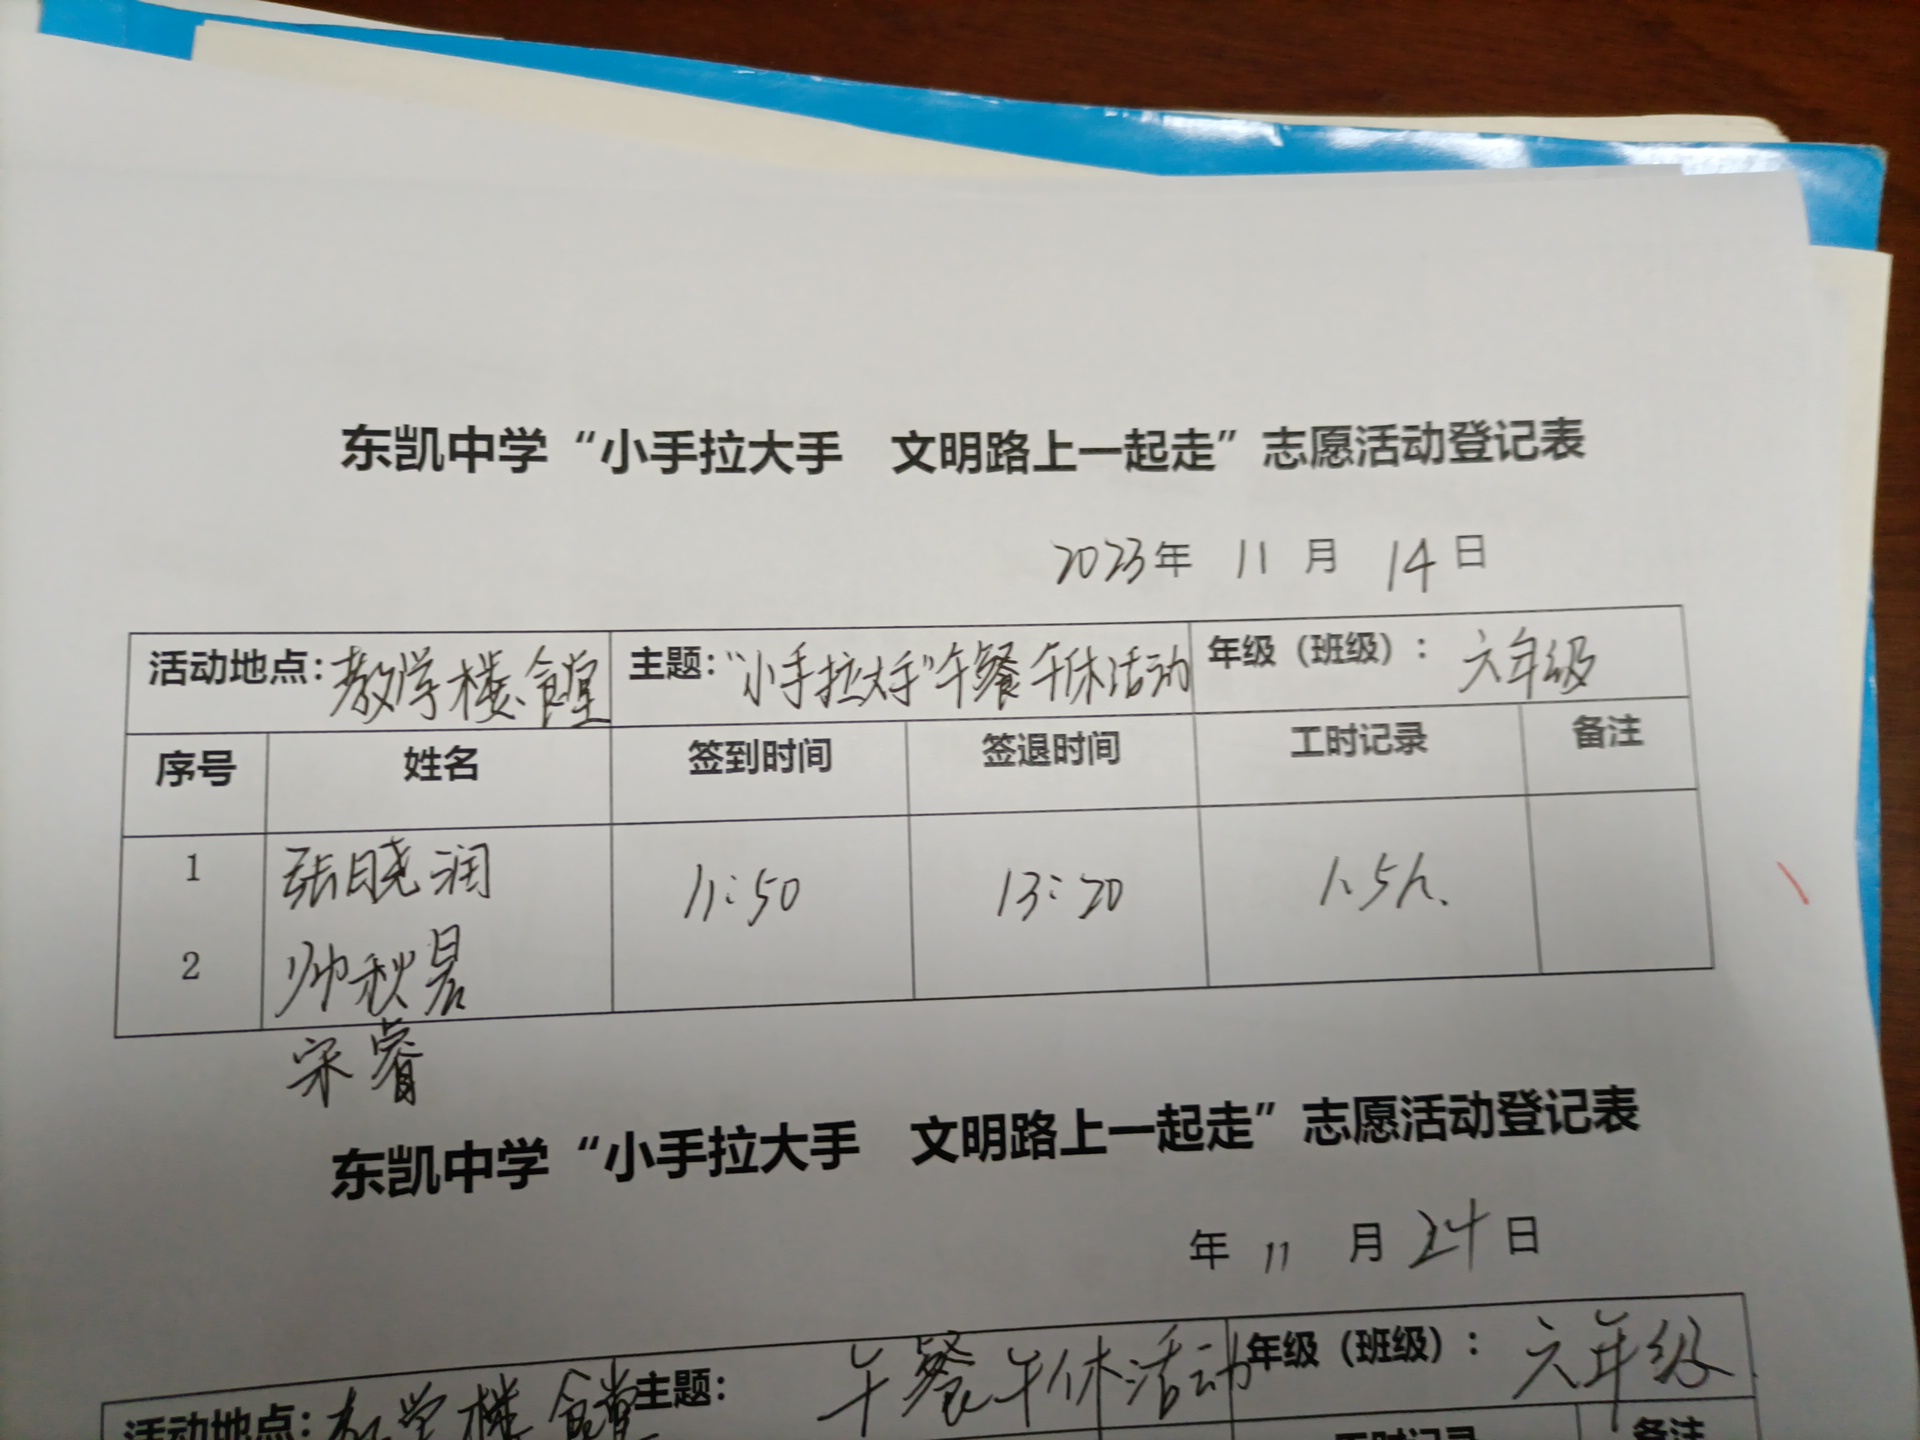 东凯中学“小手拉大手 文明路上一起走”志愿活动登记表
2023年 11 月 14 日
活动地点:教学楼、食堂 主题:“小手拉大手”午餐午休活动 年级（班级）: 六年级
序号 姓名 签到时间 签退时间 工时记录 备注
1 张晓润 11:50 13:20 1.5h.
2 帅秋
宋睿
东凯中学“小手拉大手 文明路上一起走”志愿活动登记表
年 11 月 24 日
活动地点:教学楼 食堂 主题: 午餐午休活动 年级（班级）: 六年级
工时记录 备注